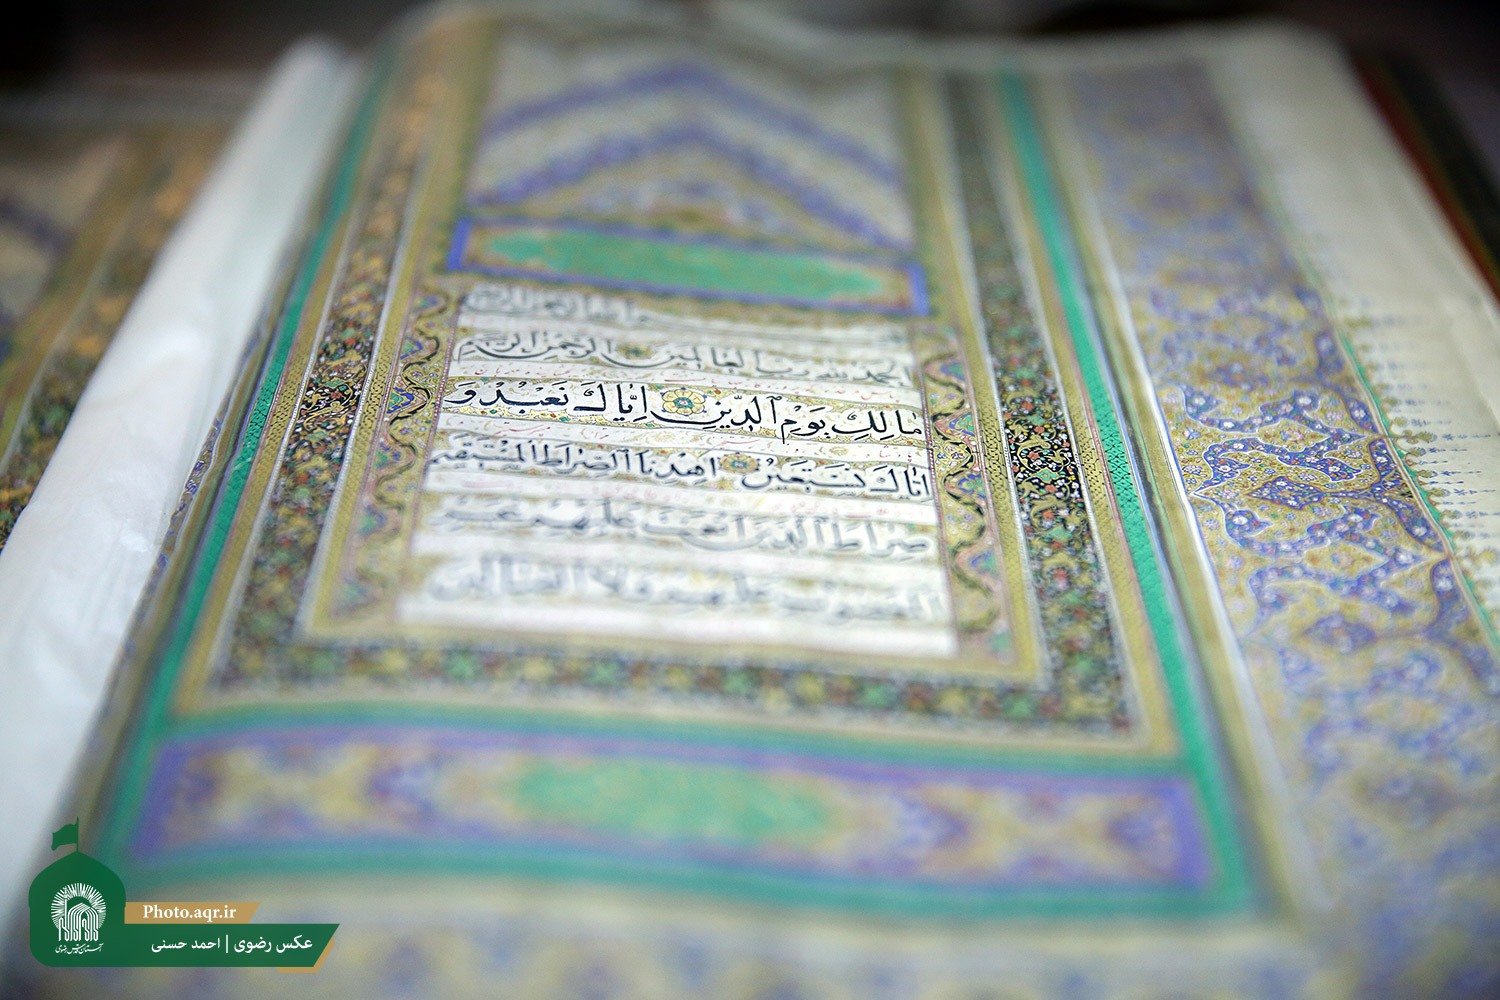 الحمد لله رب العالمین الرحمن الرحیم
مَالِكِ يَوْمِ ٱلدِّينِ اِيَّاكَ نَعْبُدُ وَ
اِيَّاكَ نَسْتَعِينُ اهْدِنَا ٱلصِّرَاطَ الْمُسْتَقِيمَ
صِرَاطَ ٱلَّذِينَ اَنْعَمْتَ عَلَيْهِمْ غَيْرِ
المغضوب علیهم ولا الضالین
Photo.aqr.ir
عکس رضوی | احمد حسنی
آستان قدس رضوی